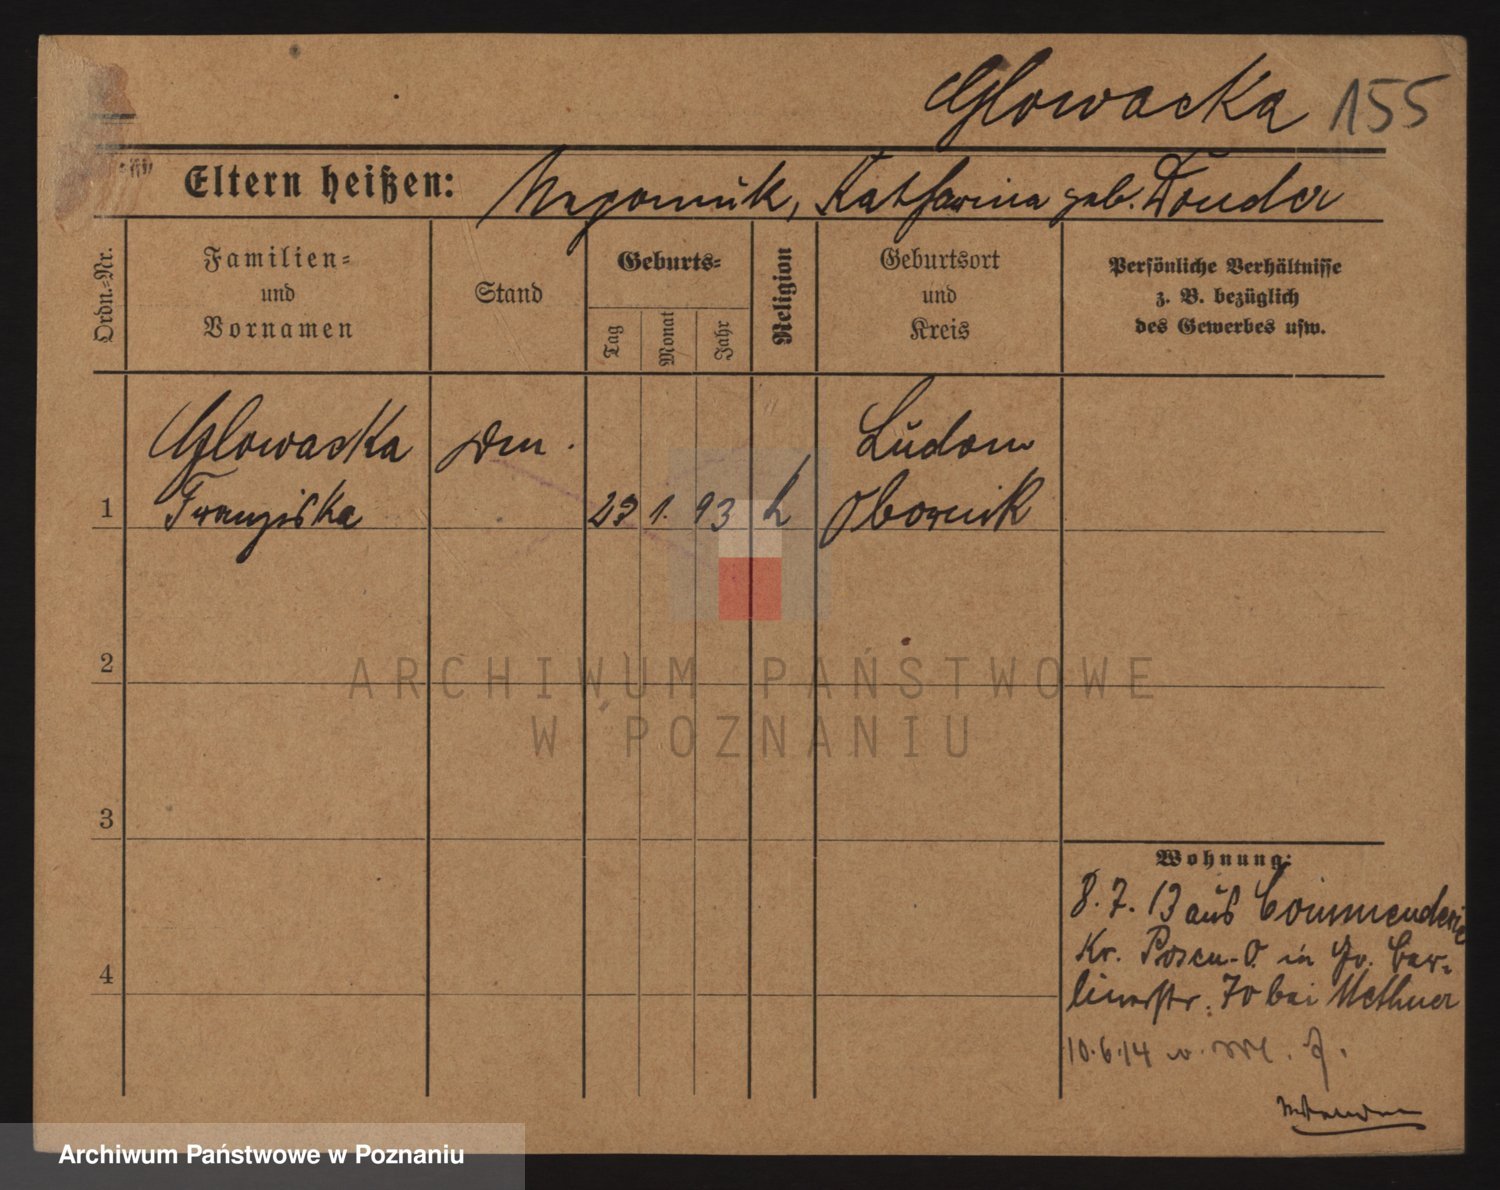 Glowacka 155
Eltern heißen: Nepomuk, Katharina geb. Donder
Ordn.-Nr.
Familien-
und
Vornamen
Stand
Geburts-
Tag
Monat
Jahr
Religion
Geburtsort
und
Kreis
Persönliche Verhältnisse
z. B. bezüglich
des Gewerbes usw.
Glowacka
Franziska
Ludom
Obornik
1 23 1. 93 k
2
ARCHIWUM PAŃSTWOWE
W POZNANIU
3
Wohnung:
8. 7. 13 aus Commenderie
Kr. Posen-O. in Gr. Ber-
linerstr. 70 bei Methner
4
10.6.14
Archiwum Państwowe w Poznaniu